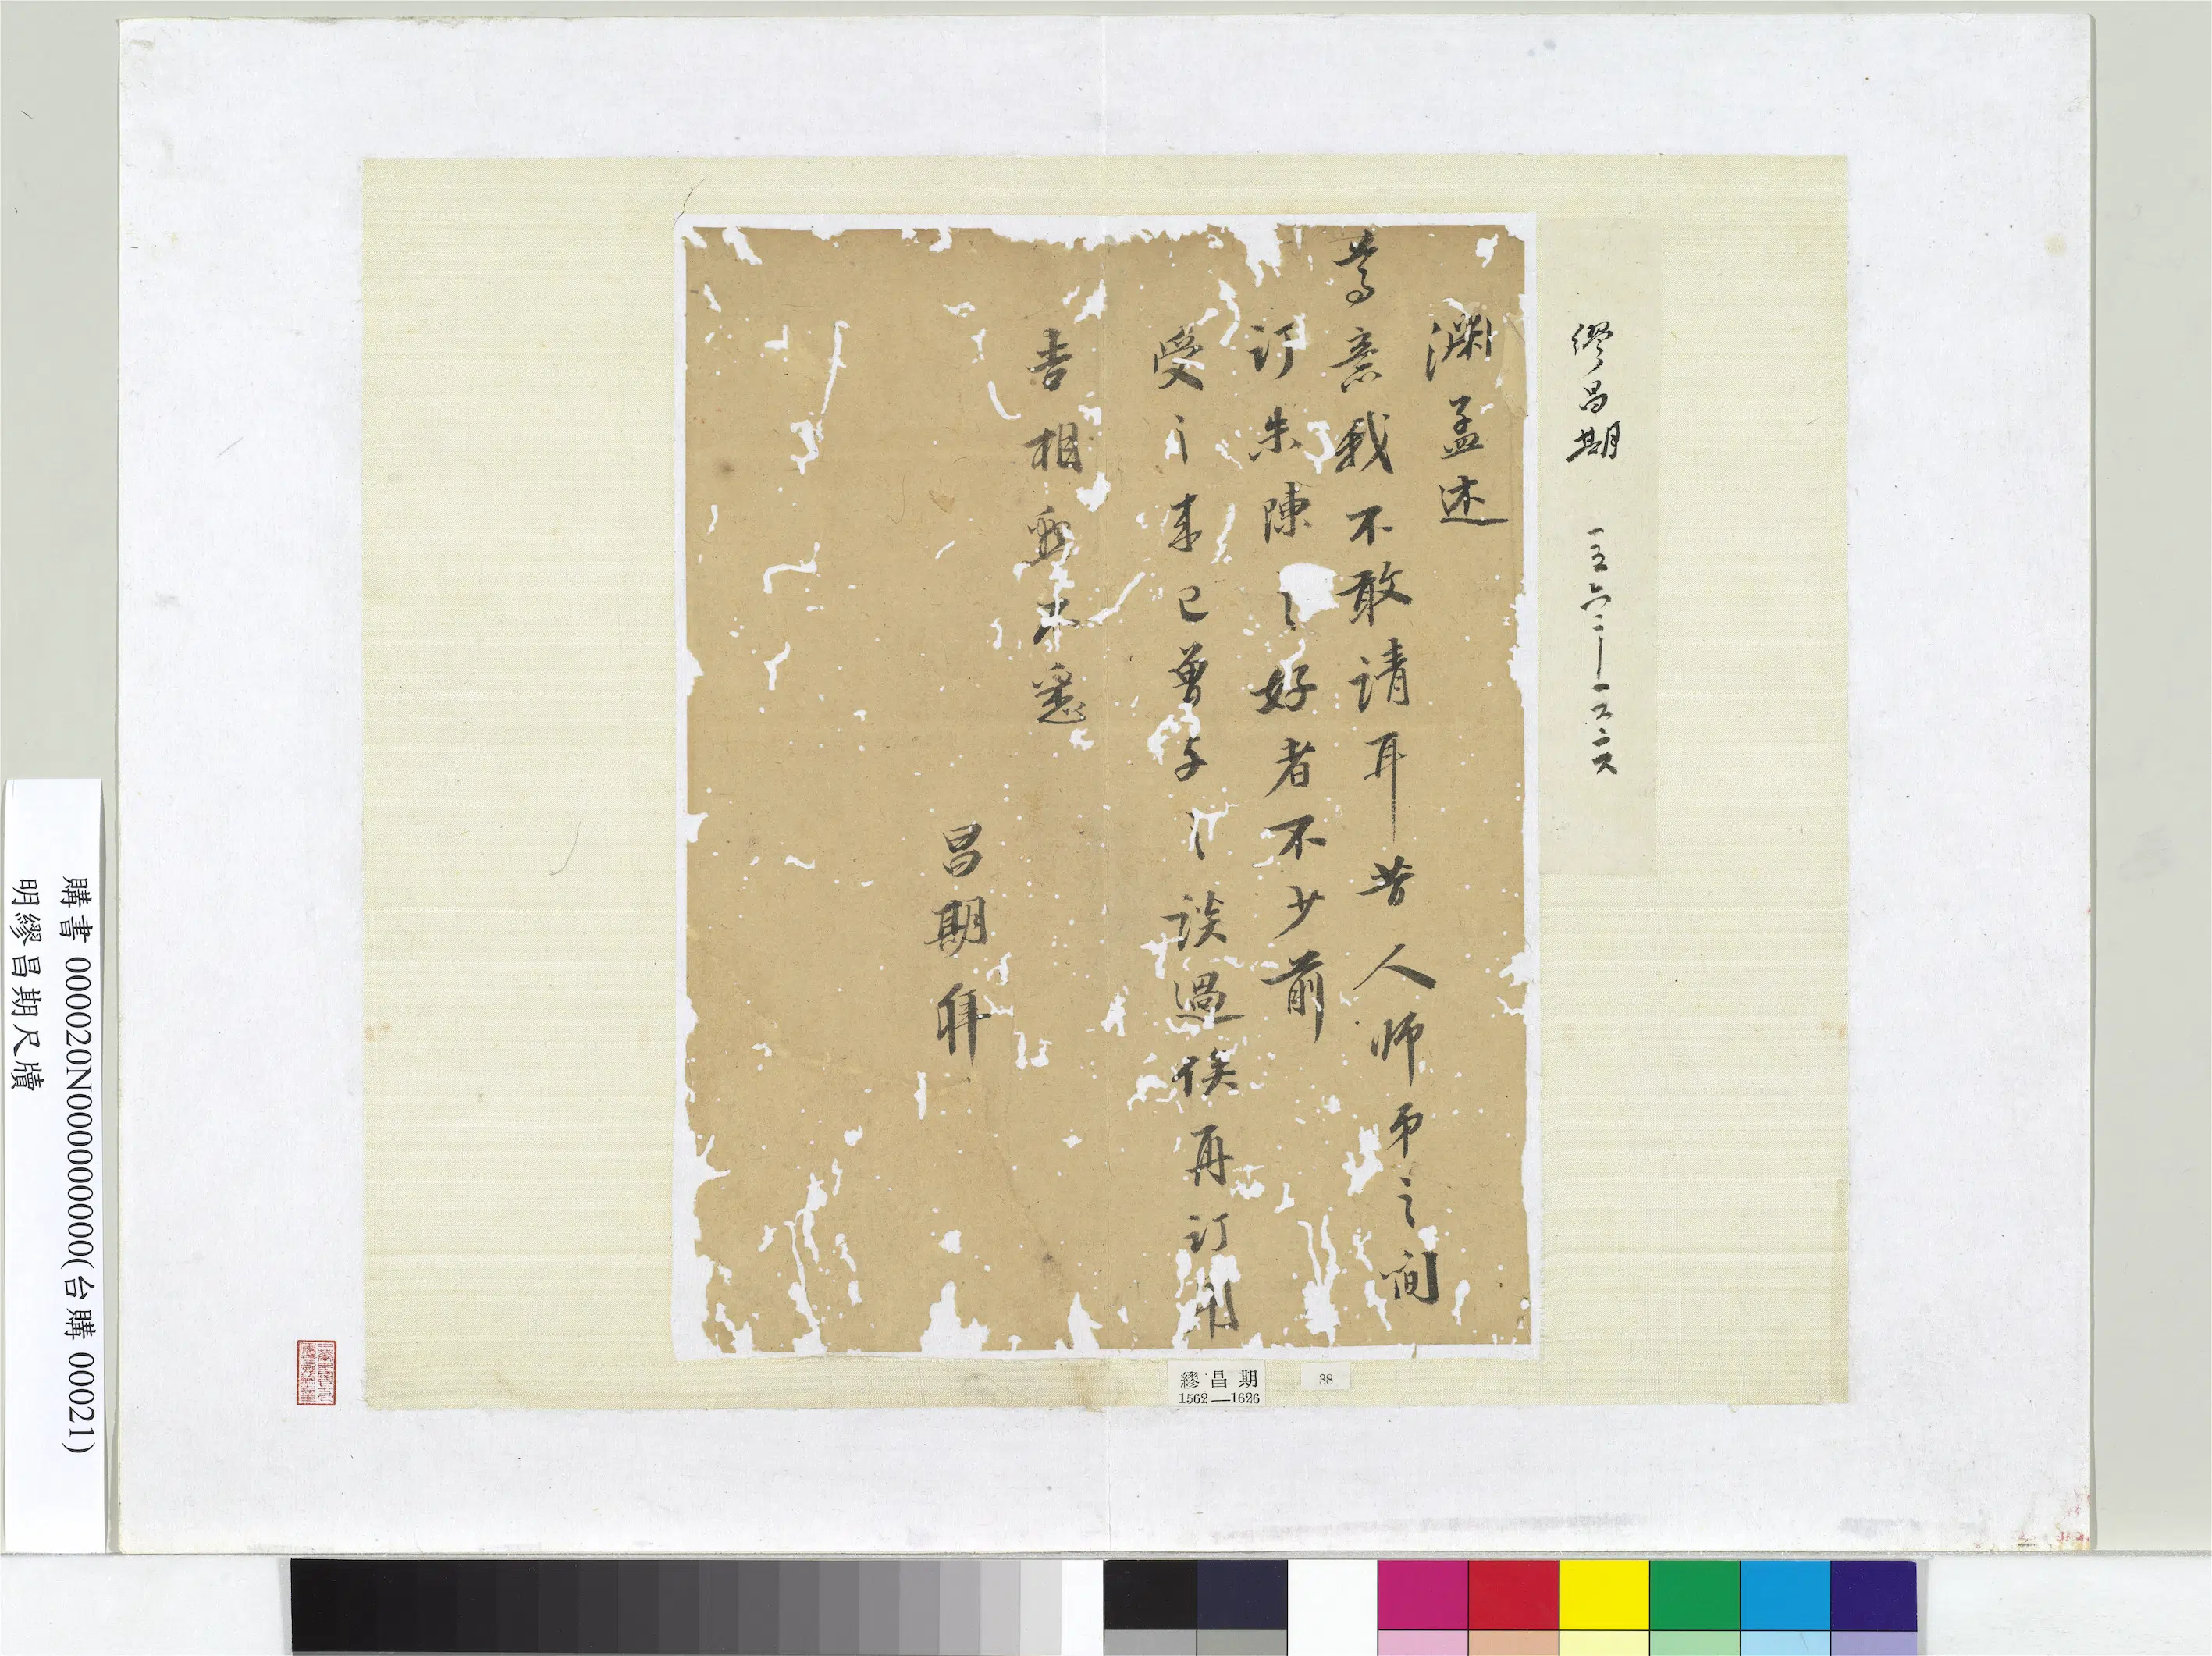 繆昌期 一五六二—一六二六
淵孟述
尊意我不敢請耳昔人師弟之間
訂朱陳之好者不少前
受之来已曾与之談過俟再訂期
吉相酌不悉
昌期拜
繆昌期
1562—1626
38
購書 000020N000000000(台購 00021)
明繆昌期尺牘